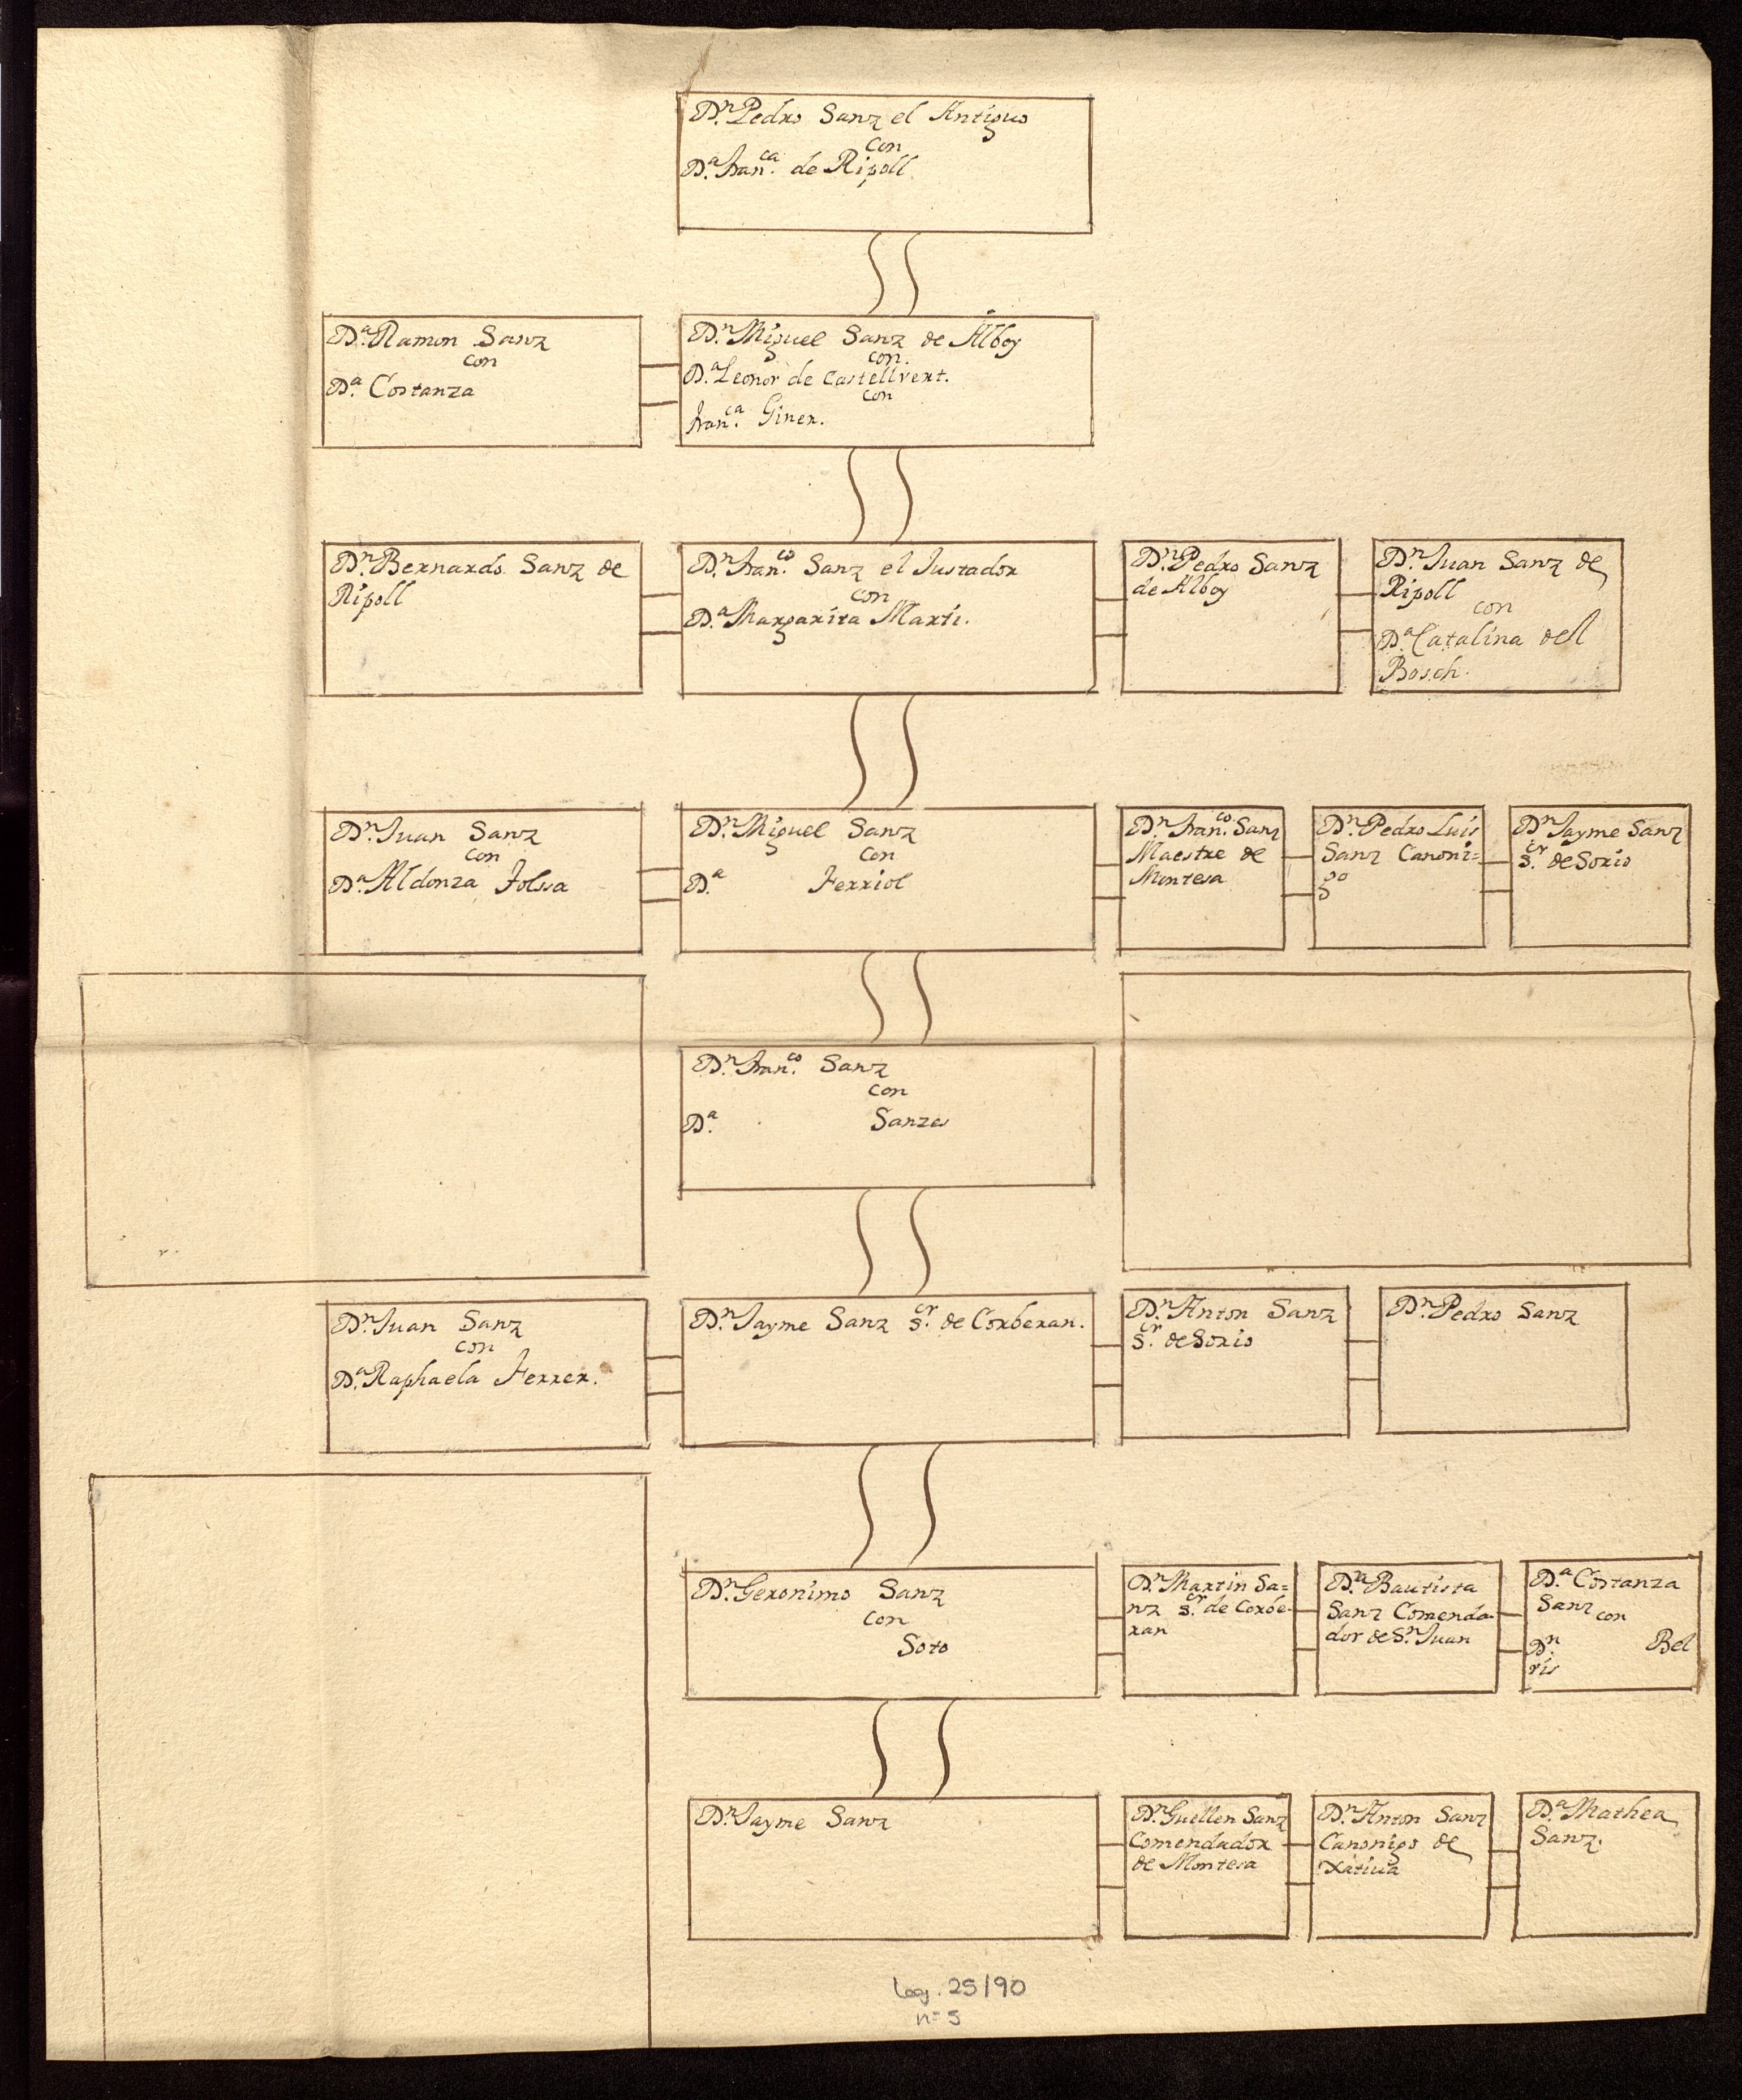 Dⁿ. Pedro Sanz el Antiguo
con
Dª. Franᶜᵃ. de Ripoll
Dª. Ramon Sanz
con
Dª. Costanza
Dⁿ. Miguel Sanz de Alboy
con.
Dª. Leonor de Castellvert.
con
Franᶜᵃ. Giner.
Dⁿ. Bernardo Sanz de
Ripoll
Dⁿ. Franᶜᵒ. Sanz el Justador
con
Dª. Margarita Marti.
Dⁿ. Pedro Sanz
de Alboy
Dⁿ. Juan Sanz de
Ripoll
con
Dª. Catalina del
Bosch.
Dⁿ. Juan Sanz
con
Dª. Aldonza Folsa
Dⁿ. Miguel Sanz
con
Dª. Ferriol
Dⁿ. Franᶜᵒ. Sanz
Maestre de
Montesa
Dⁿ. Pedro Luis
Sanz Canoni=
go
Dⁿ. Jayme Sanz
Sᵒʳ. de Sorio
Dⁿ. Franᶜᵒ. Sanz
con
Dª. Sanzes
Dⁿ. Juan Sanz
con
Dª. Raphaela Ferrer.
Dⁿ. Jayme Sanz Sᵒʳ. de Corberan.
Dⁿ. Anton Sanz
Sᵒʳ. de Sorio
Dⁿ. Pedro Sanz
Dⁿ. Geronimo Sanz
con
Soto
Dⁿ. Martin Sa=
nz Sᵒʳ. de Corbe-
ran
Dª. Bautista
Sanz Comenda-
dor de Sⁿ. Juan
Dª. Costanza
Sanz con
Dⁿ. Bel
vis
Dⁿ. Jayme Sanz
Dⁿ. Guillen Sanz
Comendador
de Montesa
Dⁿ. Anton Sanz
Canonigo de
Xativa
Dª. Mathea
Sanz.
Leg. 25/90
nº 5